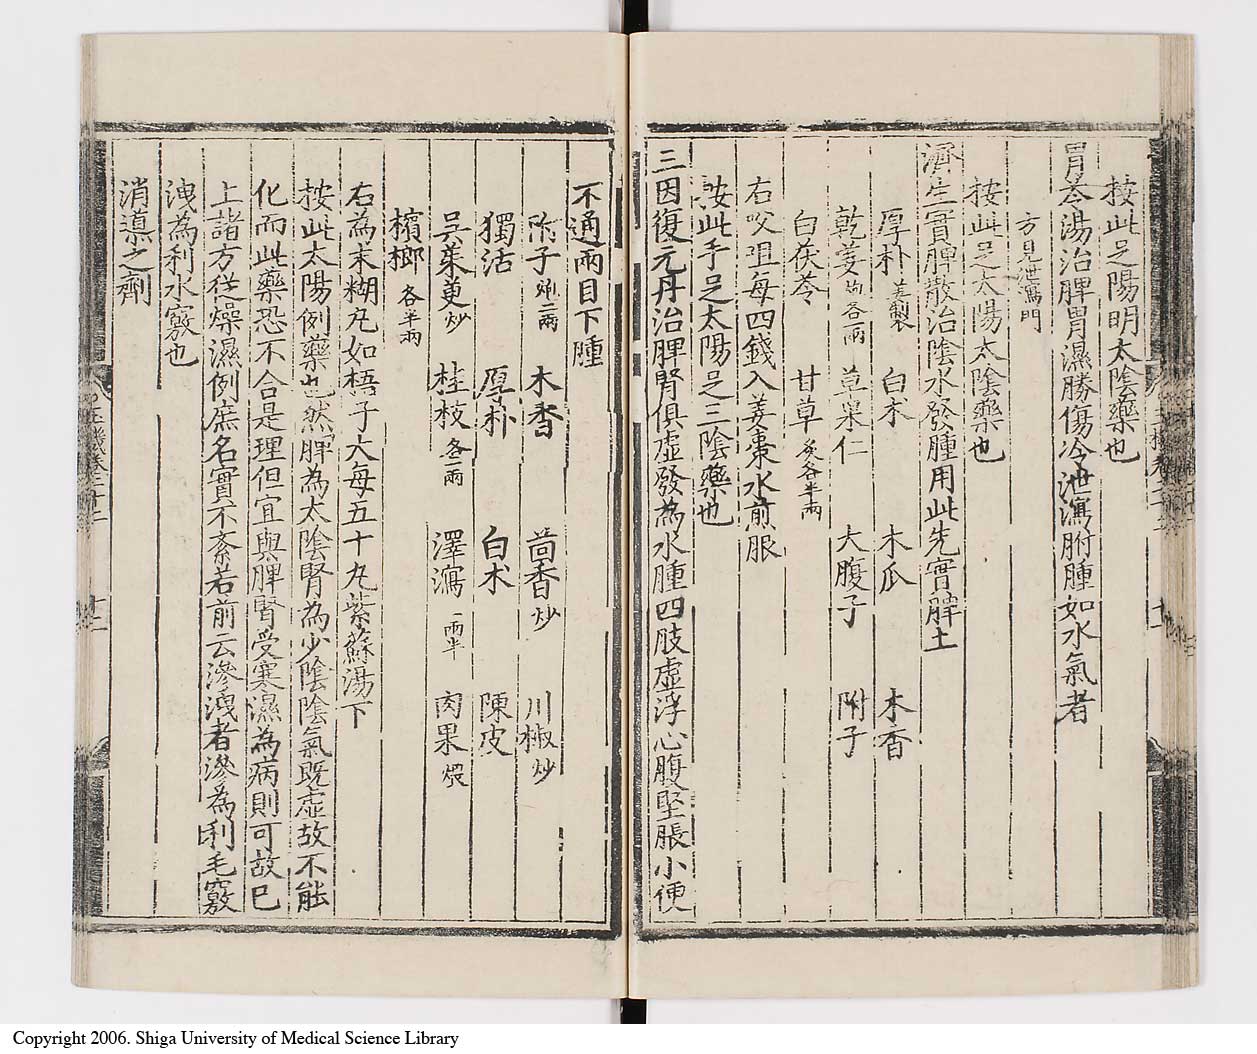 按此足陽明太陰藥也
胃苓湯治脾胃濕勝傷冷泄瀉胕腫如水氣者
方見泄瀉門
按此足太陽太陰藥也
濟生實脾散治陰水發腫用此先實脾土
厚朴 姜製 白朮 木瓜 木香
乾姜 炮各一兩 草果仁 大腹子 附子
白茯苓 甘草 炙各半兩
右㕮咀每四錢入姜棗水煎服
按此手足太陽足三陰藥也
三因復元丹治脾腎俱虛發為水腫四肢虛浮心腹堅脹小便
不通兩目下腫
附子 炮二兩 木香 茴香 炒 川椒 炒
獨活 厚朴 白朮 陳皮
吳茱萸 炒 桂枝 各一兩 澤瀉 一兩半 肉果 煨
檳榔 各半兩
右為末糊丸如梧子大每五十丸紫蘇湯下
按此太陽例藥也然脾為太陰腎為少陰陰氣既虛故不能
化而此藥恐不合是理但宜與脾腎受寒濕為病則可故已
上諸方從燥濕例庶名實不紊若前云滲洩者滲為利毛竅
洩為利水竅也
消導之劑
十二
Copyright 2006. Shiga University of Medical Science Library